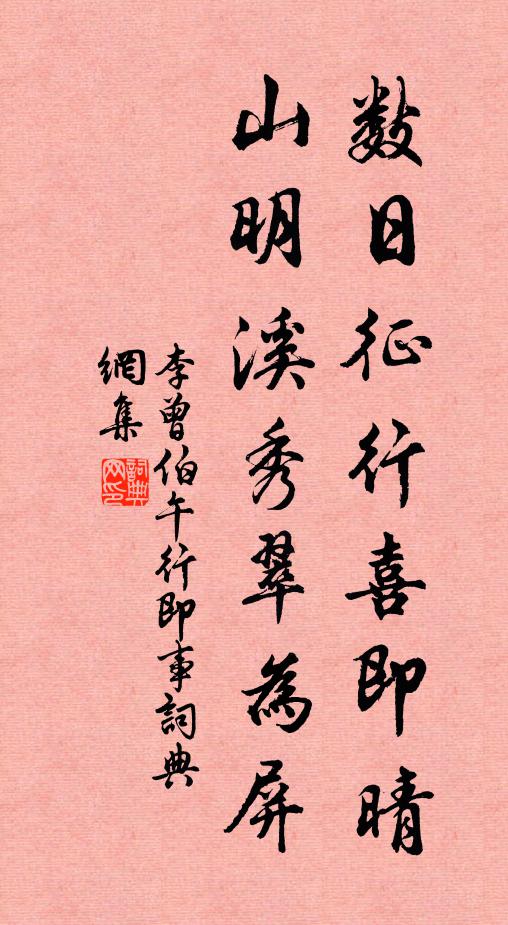 数日征行喜即晴
山明溪秀翠為屏
李曾伯午行即事詞典
網集
詞典網印